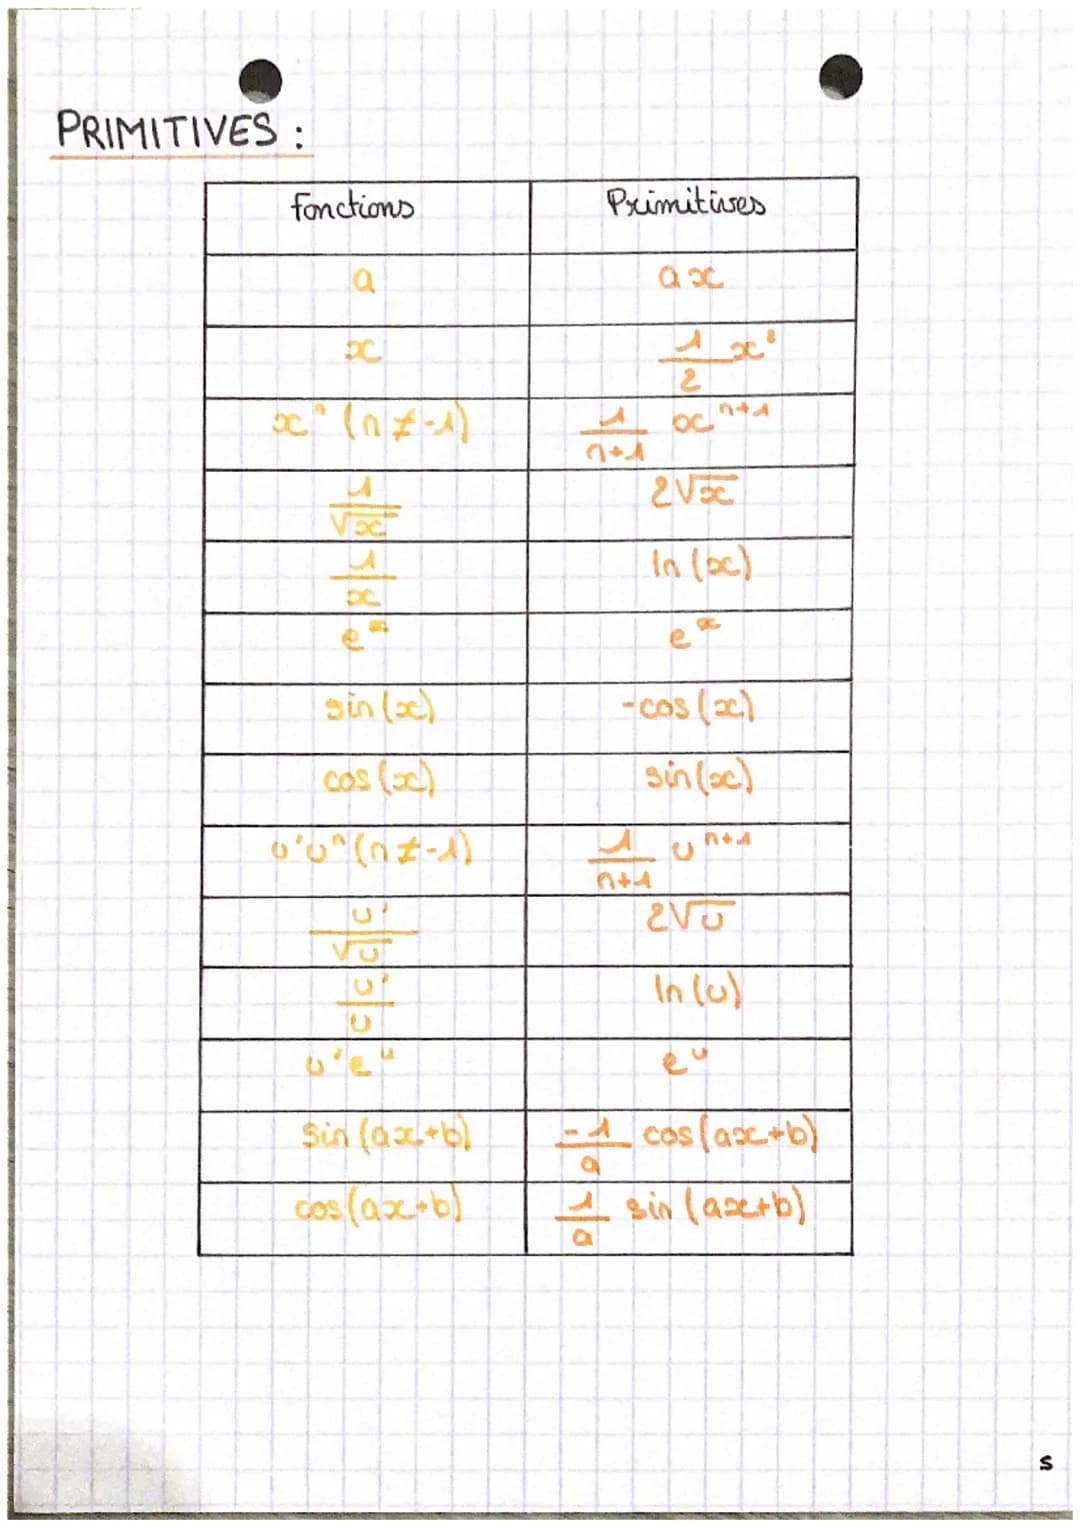 PRIMITIVES :
fonctions Primitives
a ax
x 1/2 x²
xⁿ (n ≠ -1) 1/(n+1) xⁿ⁺¹
1/√x 2√x
1/x ln (x)
eˣ eˣ
sin (x) -cos (x)
cos (x) sin (x)
u'uⁿ (n ≠ -1) 1/(n+1) uⁿ⁺¹
u'/√u 2√u
u'/u ln (u)
u'eᵘ eᵘ
sin (ax+b) -1/a cos (ax+b)
cos (ax+b) 1/a sin (ax+b)
s